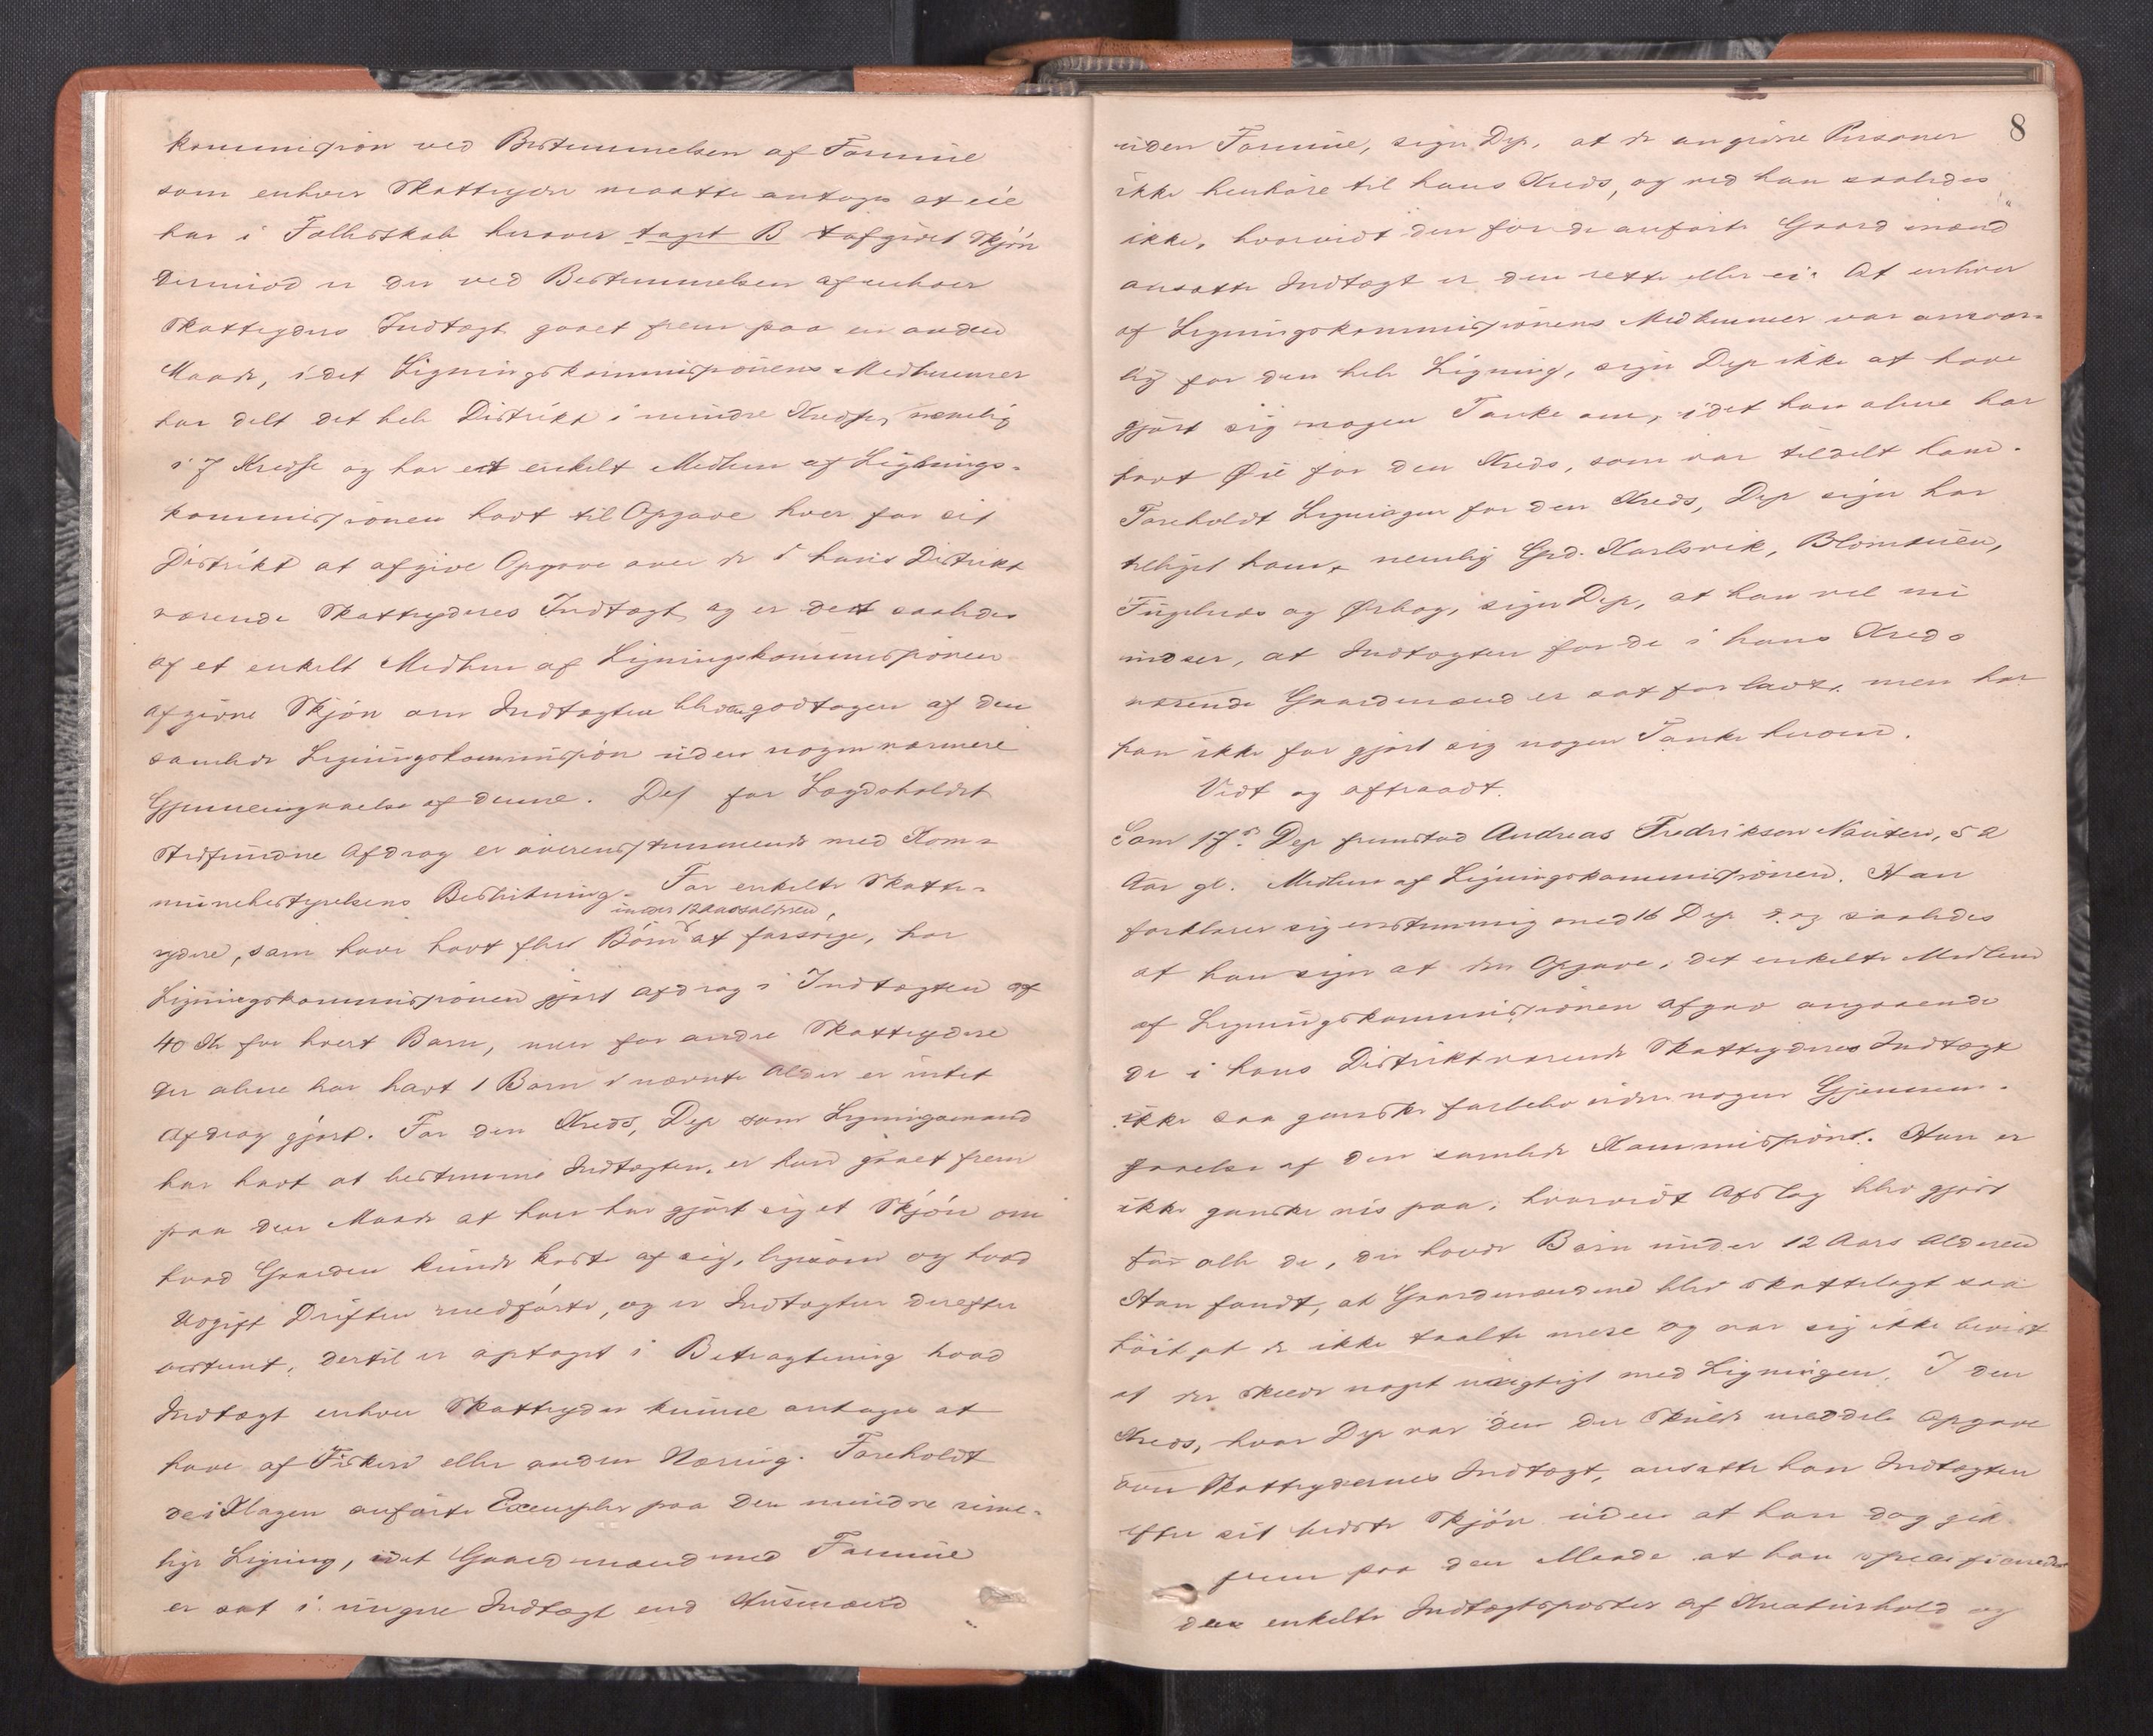 kommission ved Bestemmelsen af Formue
som enhver Skatteyder maatte antages at eie
har i Fælledskab herover taget B tafgivet Skjøn
Derimod er der ved Bestemmelsen af enhver
Skatteyders Indtægt gaaet frem paa en anden
Maade, idet Ligningskommissionens Medlemmer
har delt det hele Distrikt i mindre Kredse, nemlig
i 7 Kredse og har et enkelt Medlem af Lignings-
kommissionen havt til Opgave hver for sit
Distrikt at afgive Opgave over de i hans Distrikt
værende Skatteyderes Indtægt og er dett saaledes
af et enkelt Medlem af Ligningskommissionen
afgivne Skjøn om Indtægten bleven godtagen af den
samlede Ligningskommission uden nogen nærmere
Gjennemgaaelse af denne. Det for Lægdsholdet
stedfundne Afdrag er overensstemmende med Kom-
munebestyrelsens Beslutning. For enkelte Skatte-
under 12 Aarsalderen,
ydere, som have havt flere Børn at forsørge, har
Ligningskommissionen gjort Afdrag i Indtægten af
40 Kr for hvert Barn, men for andre Skatteydere
der alene har havt 1 Barn i nævnte Alder er intet
Afdrag gjort. For den Kreds, Dep som Ligningsmand
har havt at bestemme Indtægten, er han gaaet frem
paa den Maade at han har gjort sig et Skjøn om
hvad Gaarden kunde kaste af sig, ligesom og hvad
Udgift Driften medførte, og er Indtægten derefter
bestemt, dertil er optaget i Betragtning hvad
Indtægt enhver Skatteyder kunne antages at
have af Fiskeri eller anden Næring. Foreholdt
de i Klagen anførte Exempler paa den mindre rime-
lige Ligning, idet Gaardmænd med Formue
er sat i ringere Indtægt end Husmænd
8
uden Formue, siger Dep, at de angivne Personer
ikke henhøre til hans Kreds, og ved han saaledes
ikke, hvorvidt den for de anførte Gaardmænd
ansatte Indtægt er den rette eller ei. At enhver
af Ligningskommissionens Medlemmer var ansvar-
lig for den hele Ligning, siger Dep ikke at have
gjort sig nogen Tanke om, idet han alene har
havt Øie for den Kreds, som var tildelt ham.
Foreholdt Ligningen for den Kreds, Dep siger har
tilligget ham, nemlig Grd. Karlsvik, Blomsøien,
Fuglenes og Ørhag, siger Dep, at han vel nu
indser, at Indtægten for de i hans Kreds
værende Gaardmænd er sat for lavt, men har
han ikke før gjort sig nogen Tanke herom.
Vedt og aftraadt.
Som 17de Dep fremstod Andreas Fredriksen Nauten, 52
Aar gl. Medlem af Ligningskommissionen. Han
forklarer sig enstemmig med 16 Dep dog saaledes
at han siger at den Opgave, det enkelte Medlem
af Ligningskommissionen afgav angaaende
de i hans Distrikt værende Skatteyderes Indtægt
ikke saa ganske forblev uden nogen Gjennem-
gaaelse af den samlede Kommission. Han er
ikke ganske vis paa, hvorvidt Afslag blev gjort
for alle de, der havde Børn under 12 Aars Alderen
Han fandt, at Gaardmændene blev skattelagt saa
høit, at de ikke taalte mere og var sig ikke bevist
at der skeede noget urigtigt med Ligningen. I den
Kreds, hvor Dep var den der skulde meddele Opgave
over Skatteydernes Indtægt, ansatte han Indtægten
efter sit bedste Skjøn uden at han dog gik
frem paa den Maade at han specificerede
den enkelte Indtægtsposter af Kreaturhold og